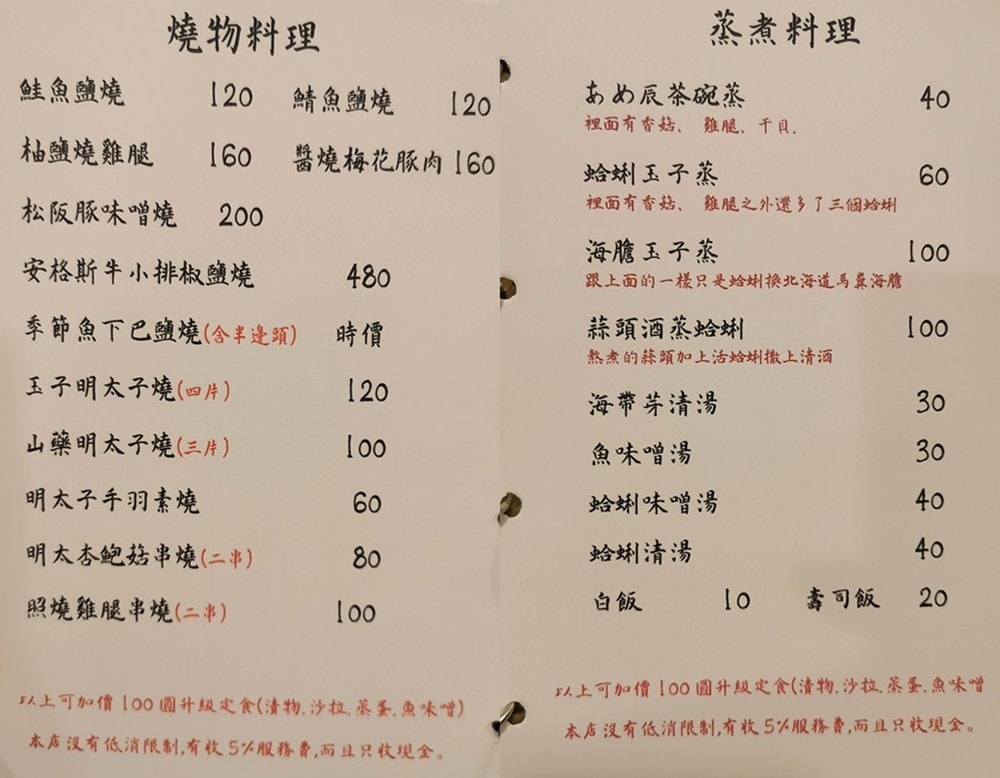 燒物料理
鮭魚鹽燒 120 鯖魚鹽燒 120
柚鹽燒雞腿 160 醬燒梅花豚肉 160
松阪豚味噌燒 200
安格斯牛小排椒鹽燒 480
季節魚下巴鹽燒(含半邊頭) 時價
玉子明太子燒(四片) 120
山藥明太子燒(三片) 100
明太子手羽素燒 60
明太杏鮑菇串燒(二串) 80
照燒雞腿串燒(二串) 100
以上可加價100圓升級定食(漬物.沙拉.蒸蛋.魚味噌)
本店沒有低消限制,有收5%服務費,而且只收現金。
蒸煮料理
あめ辰茶碗蒸 40
裡面有香菇、雞腿、干貝.
蛤蜊玉子蒸 60
裡面有香菇、雞腿之外還多了三個蛤蜊
海膽玉子蒸 100
跟上面的一樣只是蛤蜊換北海道馬糞海膽
蒜頭酒蒸蛤蜊 100
熬煮的蒜頭加上活蛤蜊撒上清酒
海帶芽清湯 30
魚味噌湯 30
蛤蜊味噌湯 40
蛤蜊清湯 40
白飯 10 壽司飯 20
以上可加價100圓升級定食(漬物.沙拉.蒸蛋.魚味噌
本店沒有低消限制,有收5%服務費,而且只收現金。